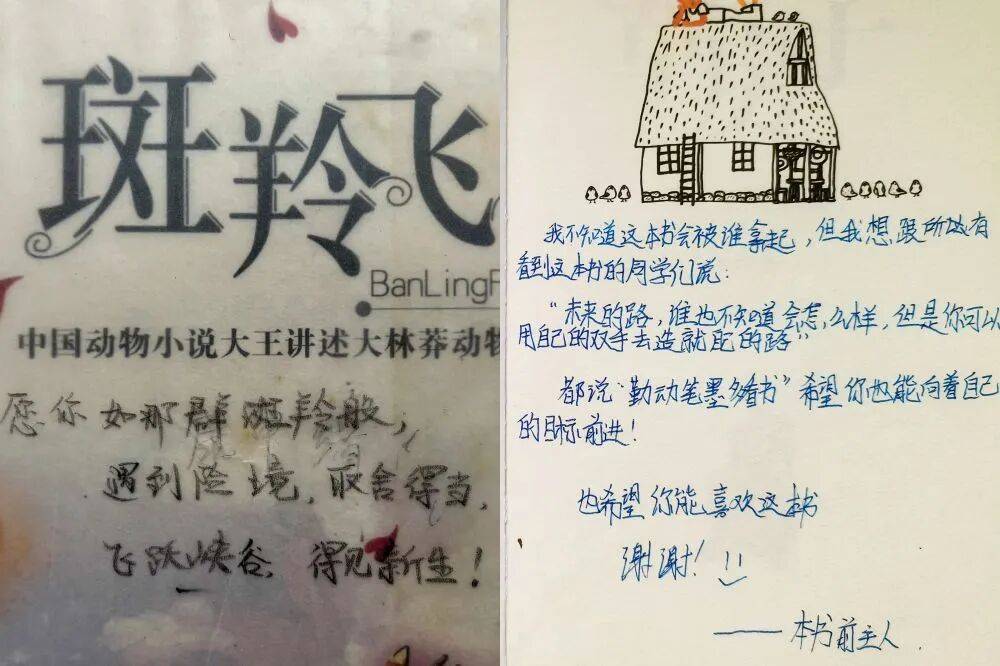 斑羚飞
BanLingF
中国动物小说大王讲述大林莽动物
愿你如那群斑羚般，
遇到险境，取舍得当，
飞跃峡谷，得见新生！
我不知道这本书会被谁拿起，但我想跟所有
看到这本书的同学们说：
“未来的路，谁也不知道会怎么样，但是你可以
用自己的双手去造就的路”
都说“勤动笔墨多看书”希望你也能向着自己
的目标前进！
也希望你能喜欢这本书
谢谢！
——本书前主人